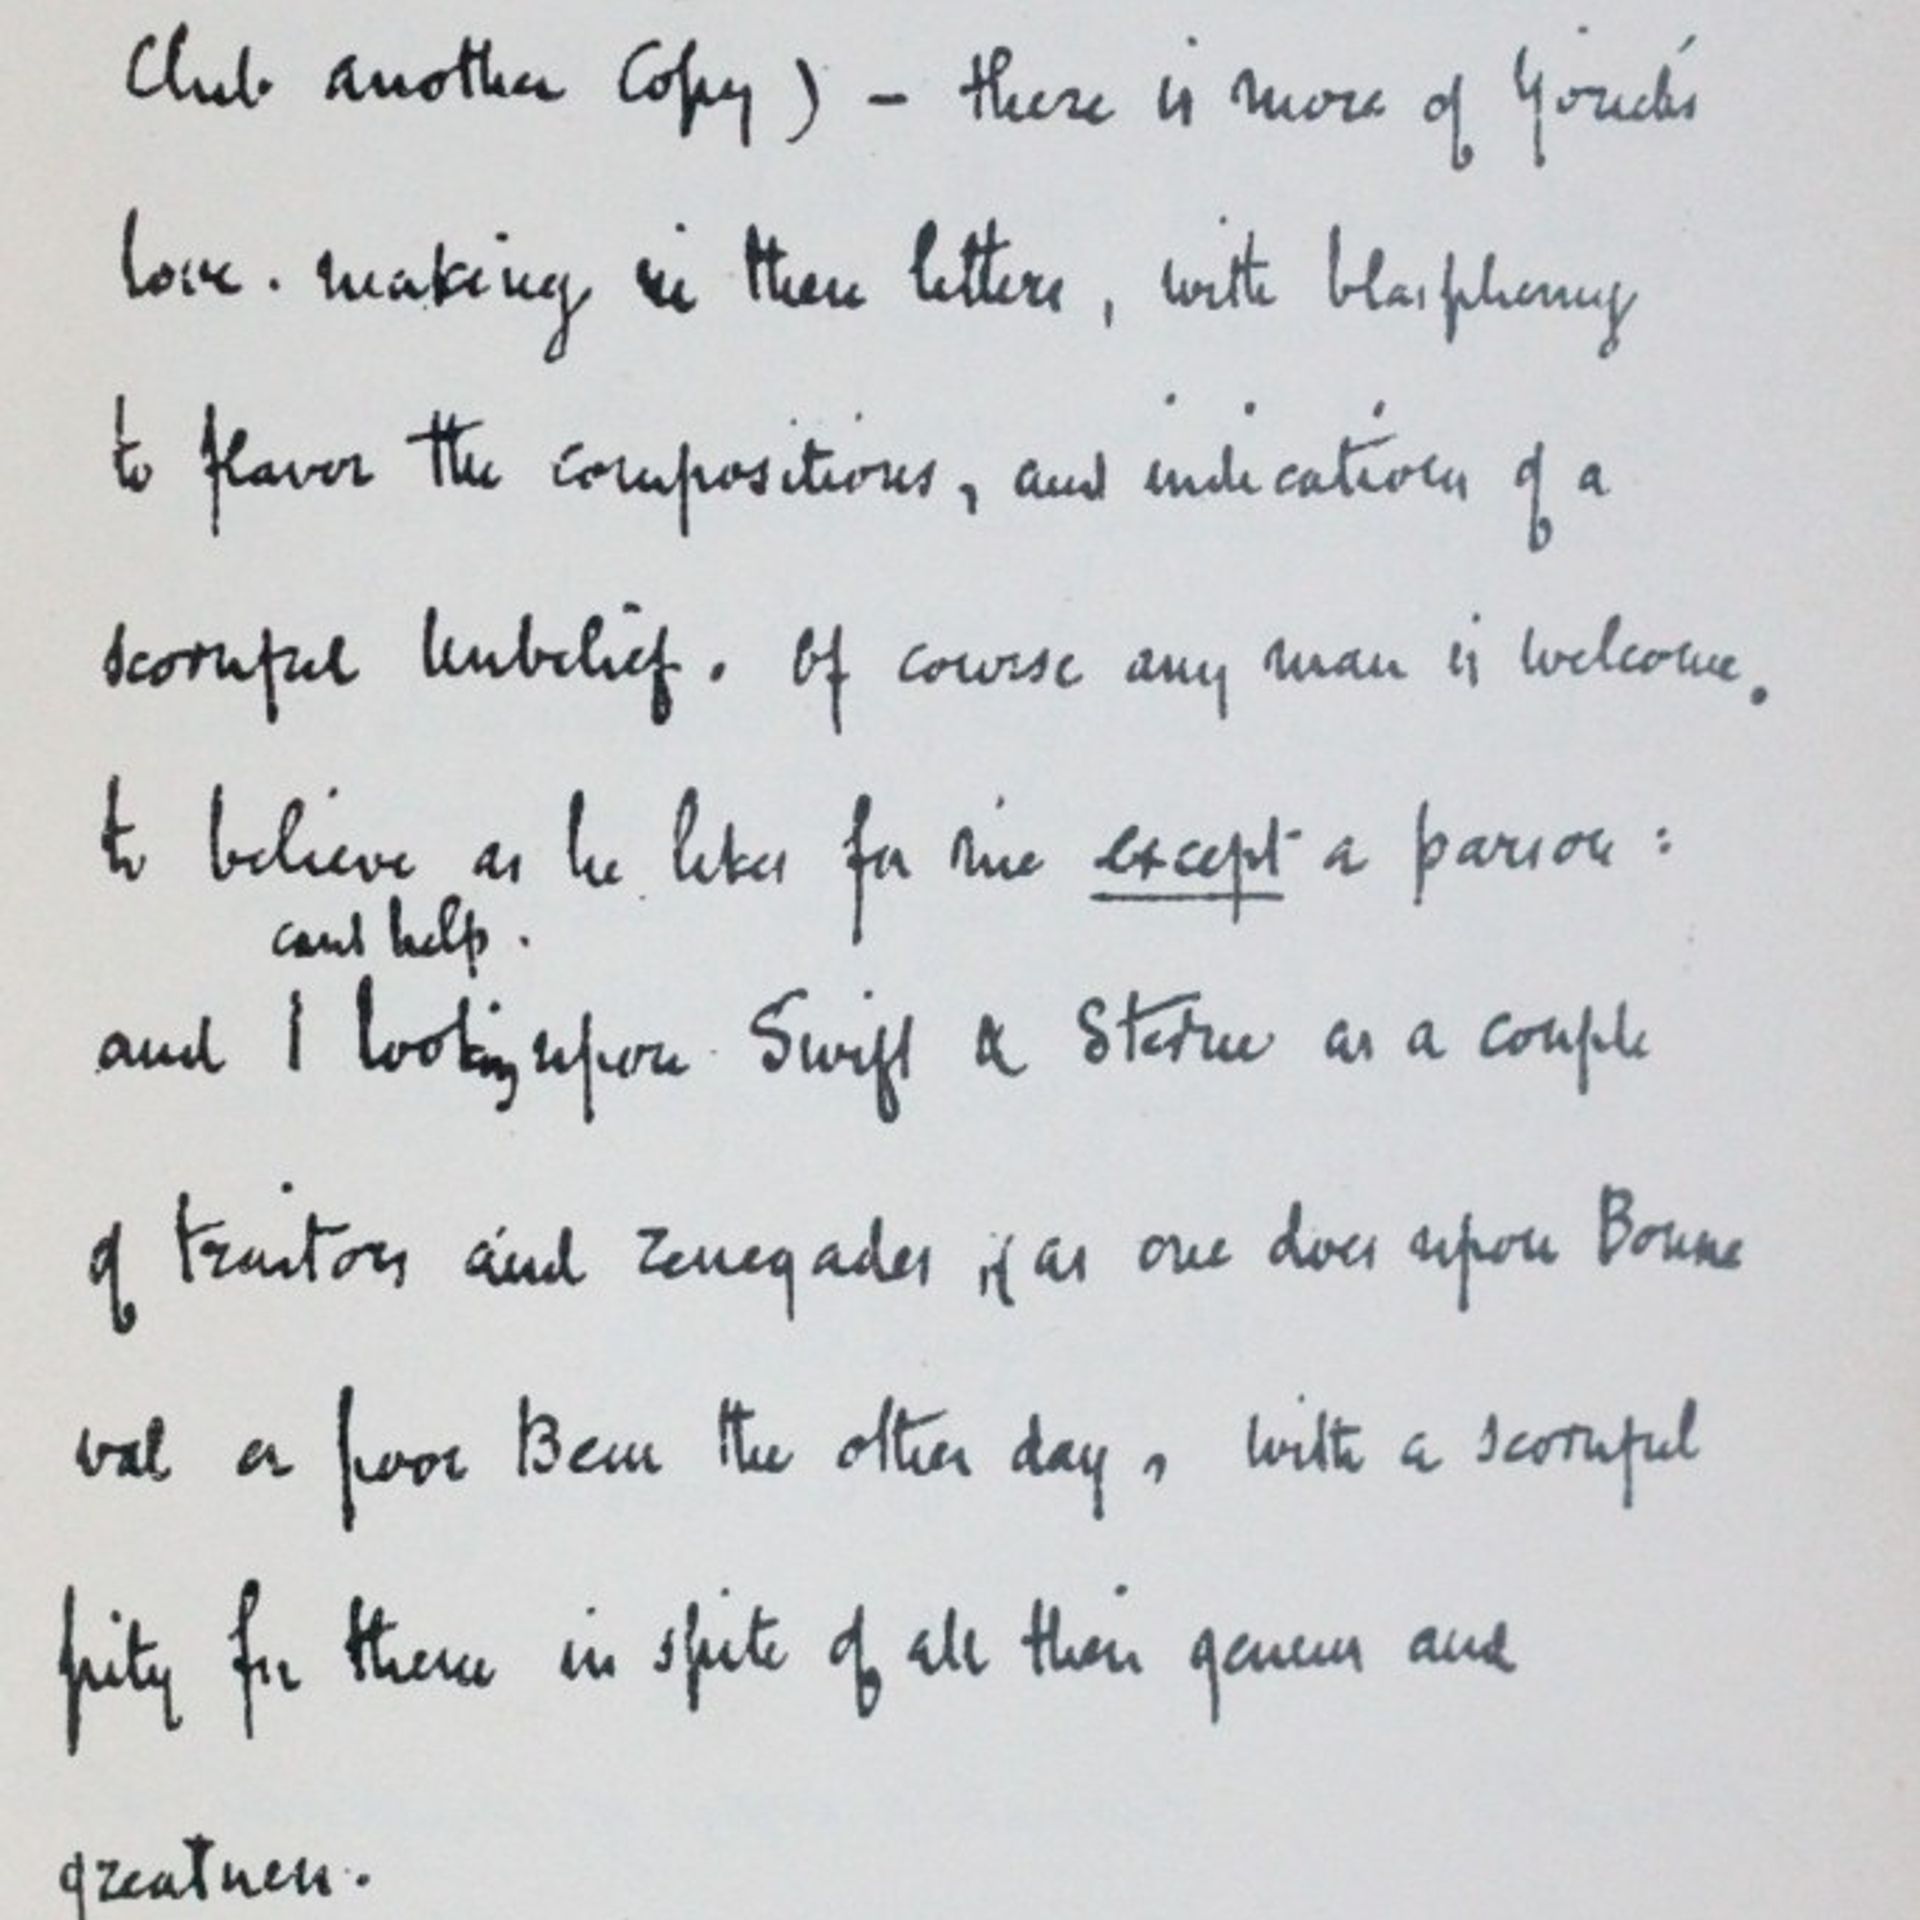 Club another Copy) – there is more of Yorick's
love-making in these letters, with blasphemy
to flavor the compositions, and indications of a
scornful Unbelief. Of course any man is welcome.
to believe as he likes for me except a parson:
cant help.
and I looking upon Swift & Sterne as a couple
of traitors and renegades as one does upon Bonne
val or poor Bem the other day, with a scornful
pity for them in spite of all their genius and
greatness.